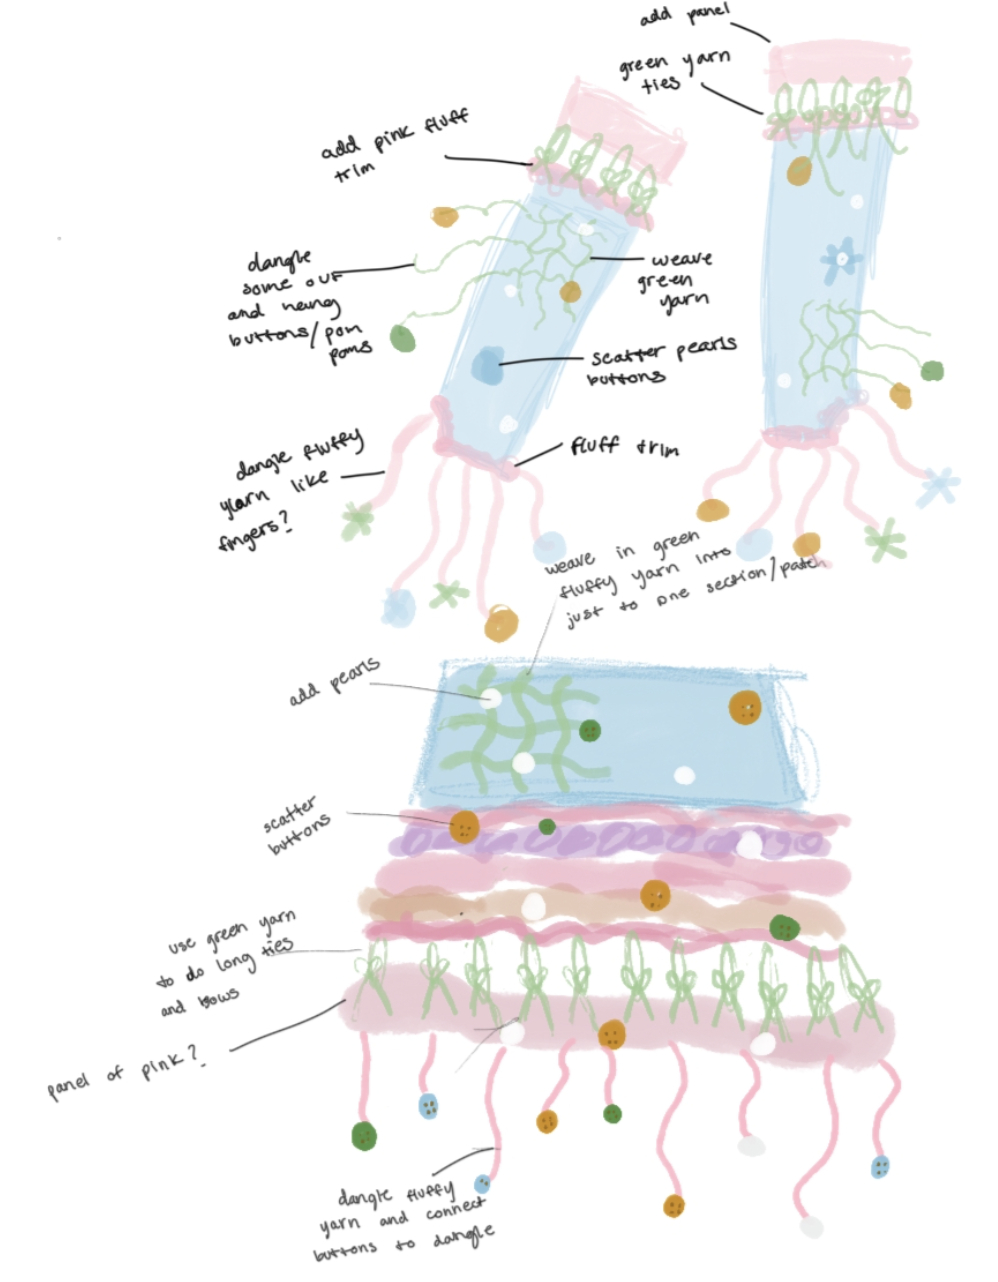 add panel
green yarn
ties
add pink fluff
trim
dangle
some out
and hang
buttons/pom
poms
weave
green
yarn
scatter pearls
buttons
dangle fluffy
yarn like
fingers?
fluff trim
weave in green
fluffy yarn into
just to one section/patch
add pearls
scatter
buttons
use green yarn
to do long ties
and bows
panel of pink?
dangle fluffy
yarn and connect
buttons to dangle